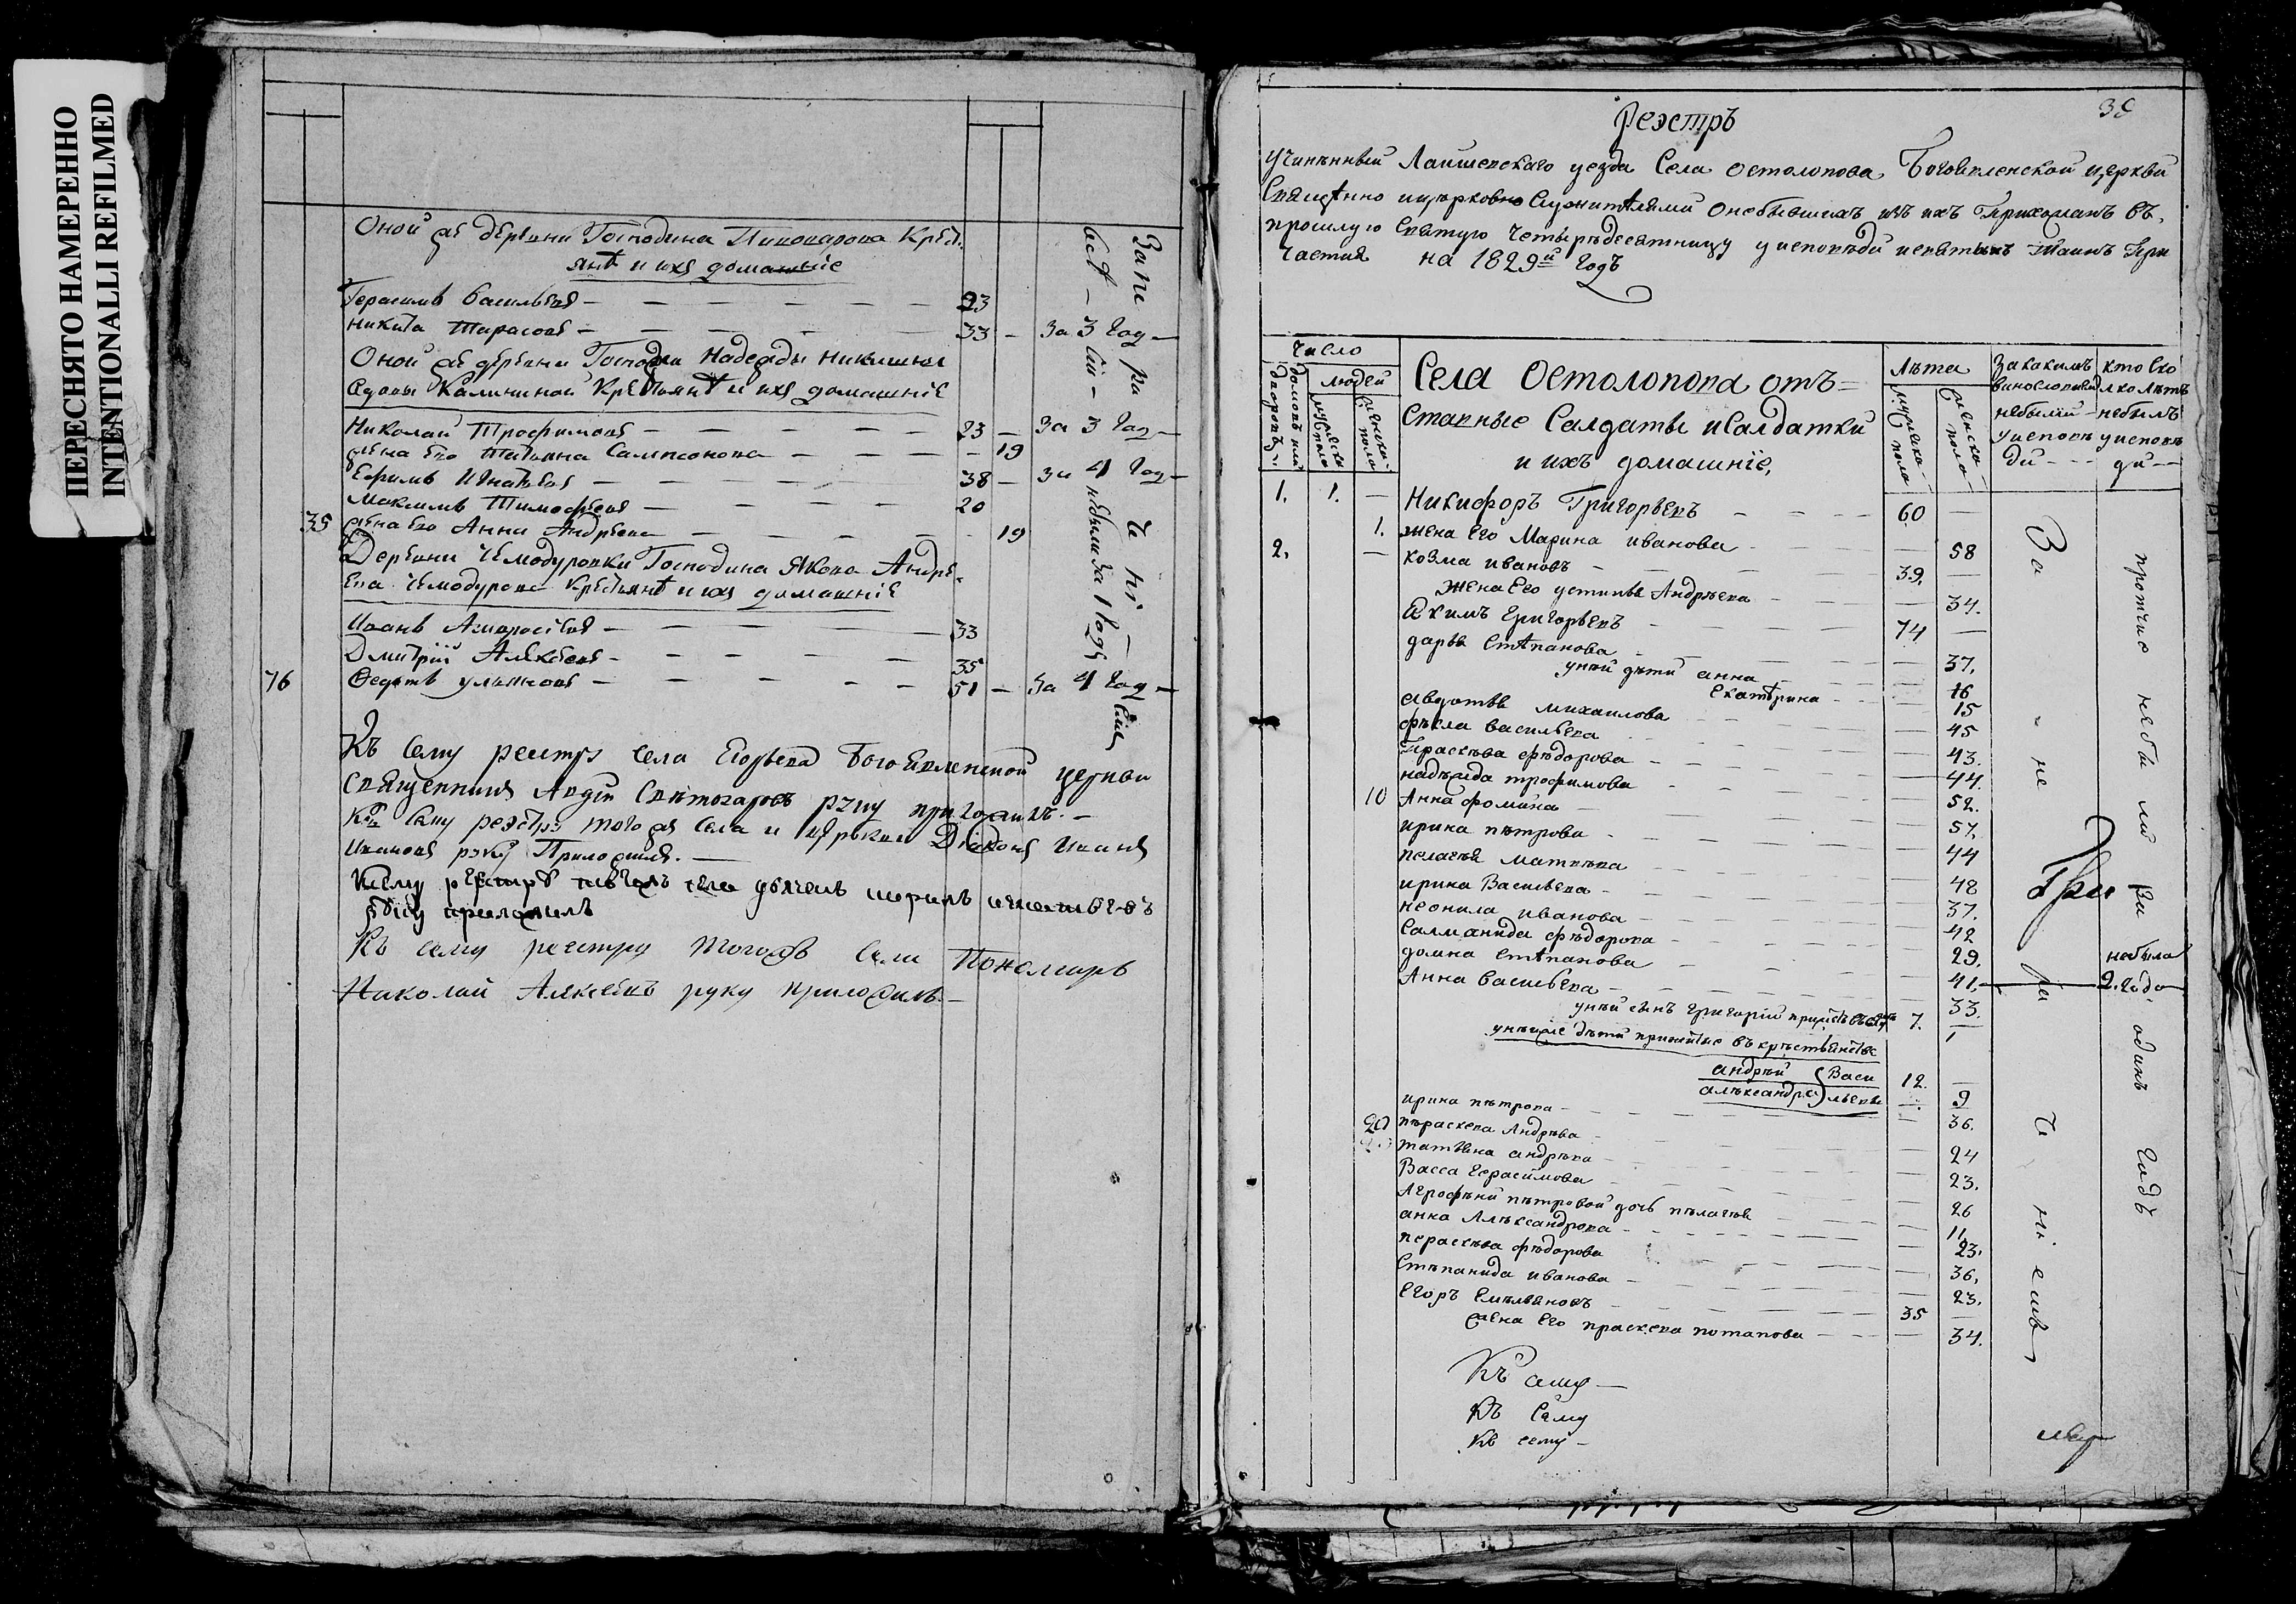 ПЕРЕСНЯТО НАМЕРЕННО
INTENTIONALLI REFILMED
Оной же деревни Господина Пивоварова Крест.
янъ и ихъ домашніе
Герасимъ Васильевъ — 23
Никита Тарасовъ — 33 — За 3 год —
Оной же деревни Госпожи Надежды Никитиной
вдовы Калининой Крестьянъ и ихъ домашніе
Николай Трофимовъ — 23 — За 3 год —
жена его Татьяна Сампсонова — 19
Ефимъ Игнатьевъ — 38 — За 4 год —
Максимъ Тимофеевъ — 20
35 жена его Анна Андреева — 19
Деревни Чемодуровки Господина Якова Андре-
ева Чемодурова Крестьянъ и ихъ домашніе
Иванъ Амвросіевъ — 33
Дмитрій Алексеевъ — 35
76 Федотъ — 51 — За 4 год —
Къ сему реестру села Егорьева Богоявленской церкви
Священникъ Авдій руку приложилъ. —
Къ сему реэстру того же села и церкви Діаконъ Иванъ
Ивановъ руку Приложилъ. —
Къ сему реестру того же села Пономарь
Николай Алексеевъ руку приложилъ —
39
Реэстръ
Учиненный Лаишевскаго уезда Села Остолопова Богоявленской церкви
Священно церковно служителями о небывшихъ изъ ихъ Прихожанъ въ
прошлую Святую Четыредесятницу у исповѣди и святыхъ Таинъ При
частия на 1829й годъ
Число
домовъ или дворовъ
людей
мужска пола
женска пола
Села Остолопова отъ=
ставные Салдаты и Салдатки
и ихъ домашніе,
Лѣта
мужска пола
женска пола
За какимъ
винословіемъ
небылъ
у исповѣ
ди —
кто ско
лко лѣтъ
небылъ
у исповѣ
ди —
1. 1. — Никифоръ Григорьевъ — 60 —
1. жена его Марина иванова — 58
2. — козма ивановъ — 39. —
жена его устинья Андрѣева — 34.
Якимъ григорьевъ — 74 —
дарья степанова — 37,
у ней дѣти анна — 16
екатерина — 15
авдотья михаилова — 45
фекла васильева — 43.
Прасковья федорова — 44.
надежда трофимова — 52.
10 Анна фомина — 57,
ирина петрова — 44
пелагея матвѣева — 48
ирина Васильева — 37.
неонила иванова — 42
Саломанида федорова — 29.
домна степанова — 41, небыла 2. года
Анна васильева — 33.
у ней сынъ григорій 7.
у неиже дѣти прижитые въ крестьянстве
андрей } Васи 12. —
александра } льевы — 9
ирина петрова — 36.
20 параскева Андреева — 24
татьяна андреева — 23.
Васса герасимова — 26
Агрофены петровой дочь пелагея — 11,
анна Александрова — 23.
пераскева федорова — 36,
Степанида иванова — 23.
егоръ емельяновъ — 35 —
жена его праскева потапова — 34.
прочие небыли одинъ годъ
Къ сему —
Къ Сему
Къ сему —